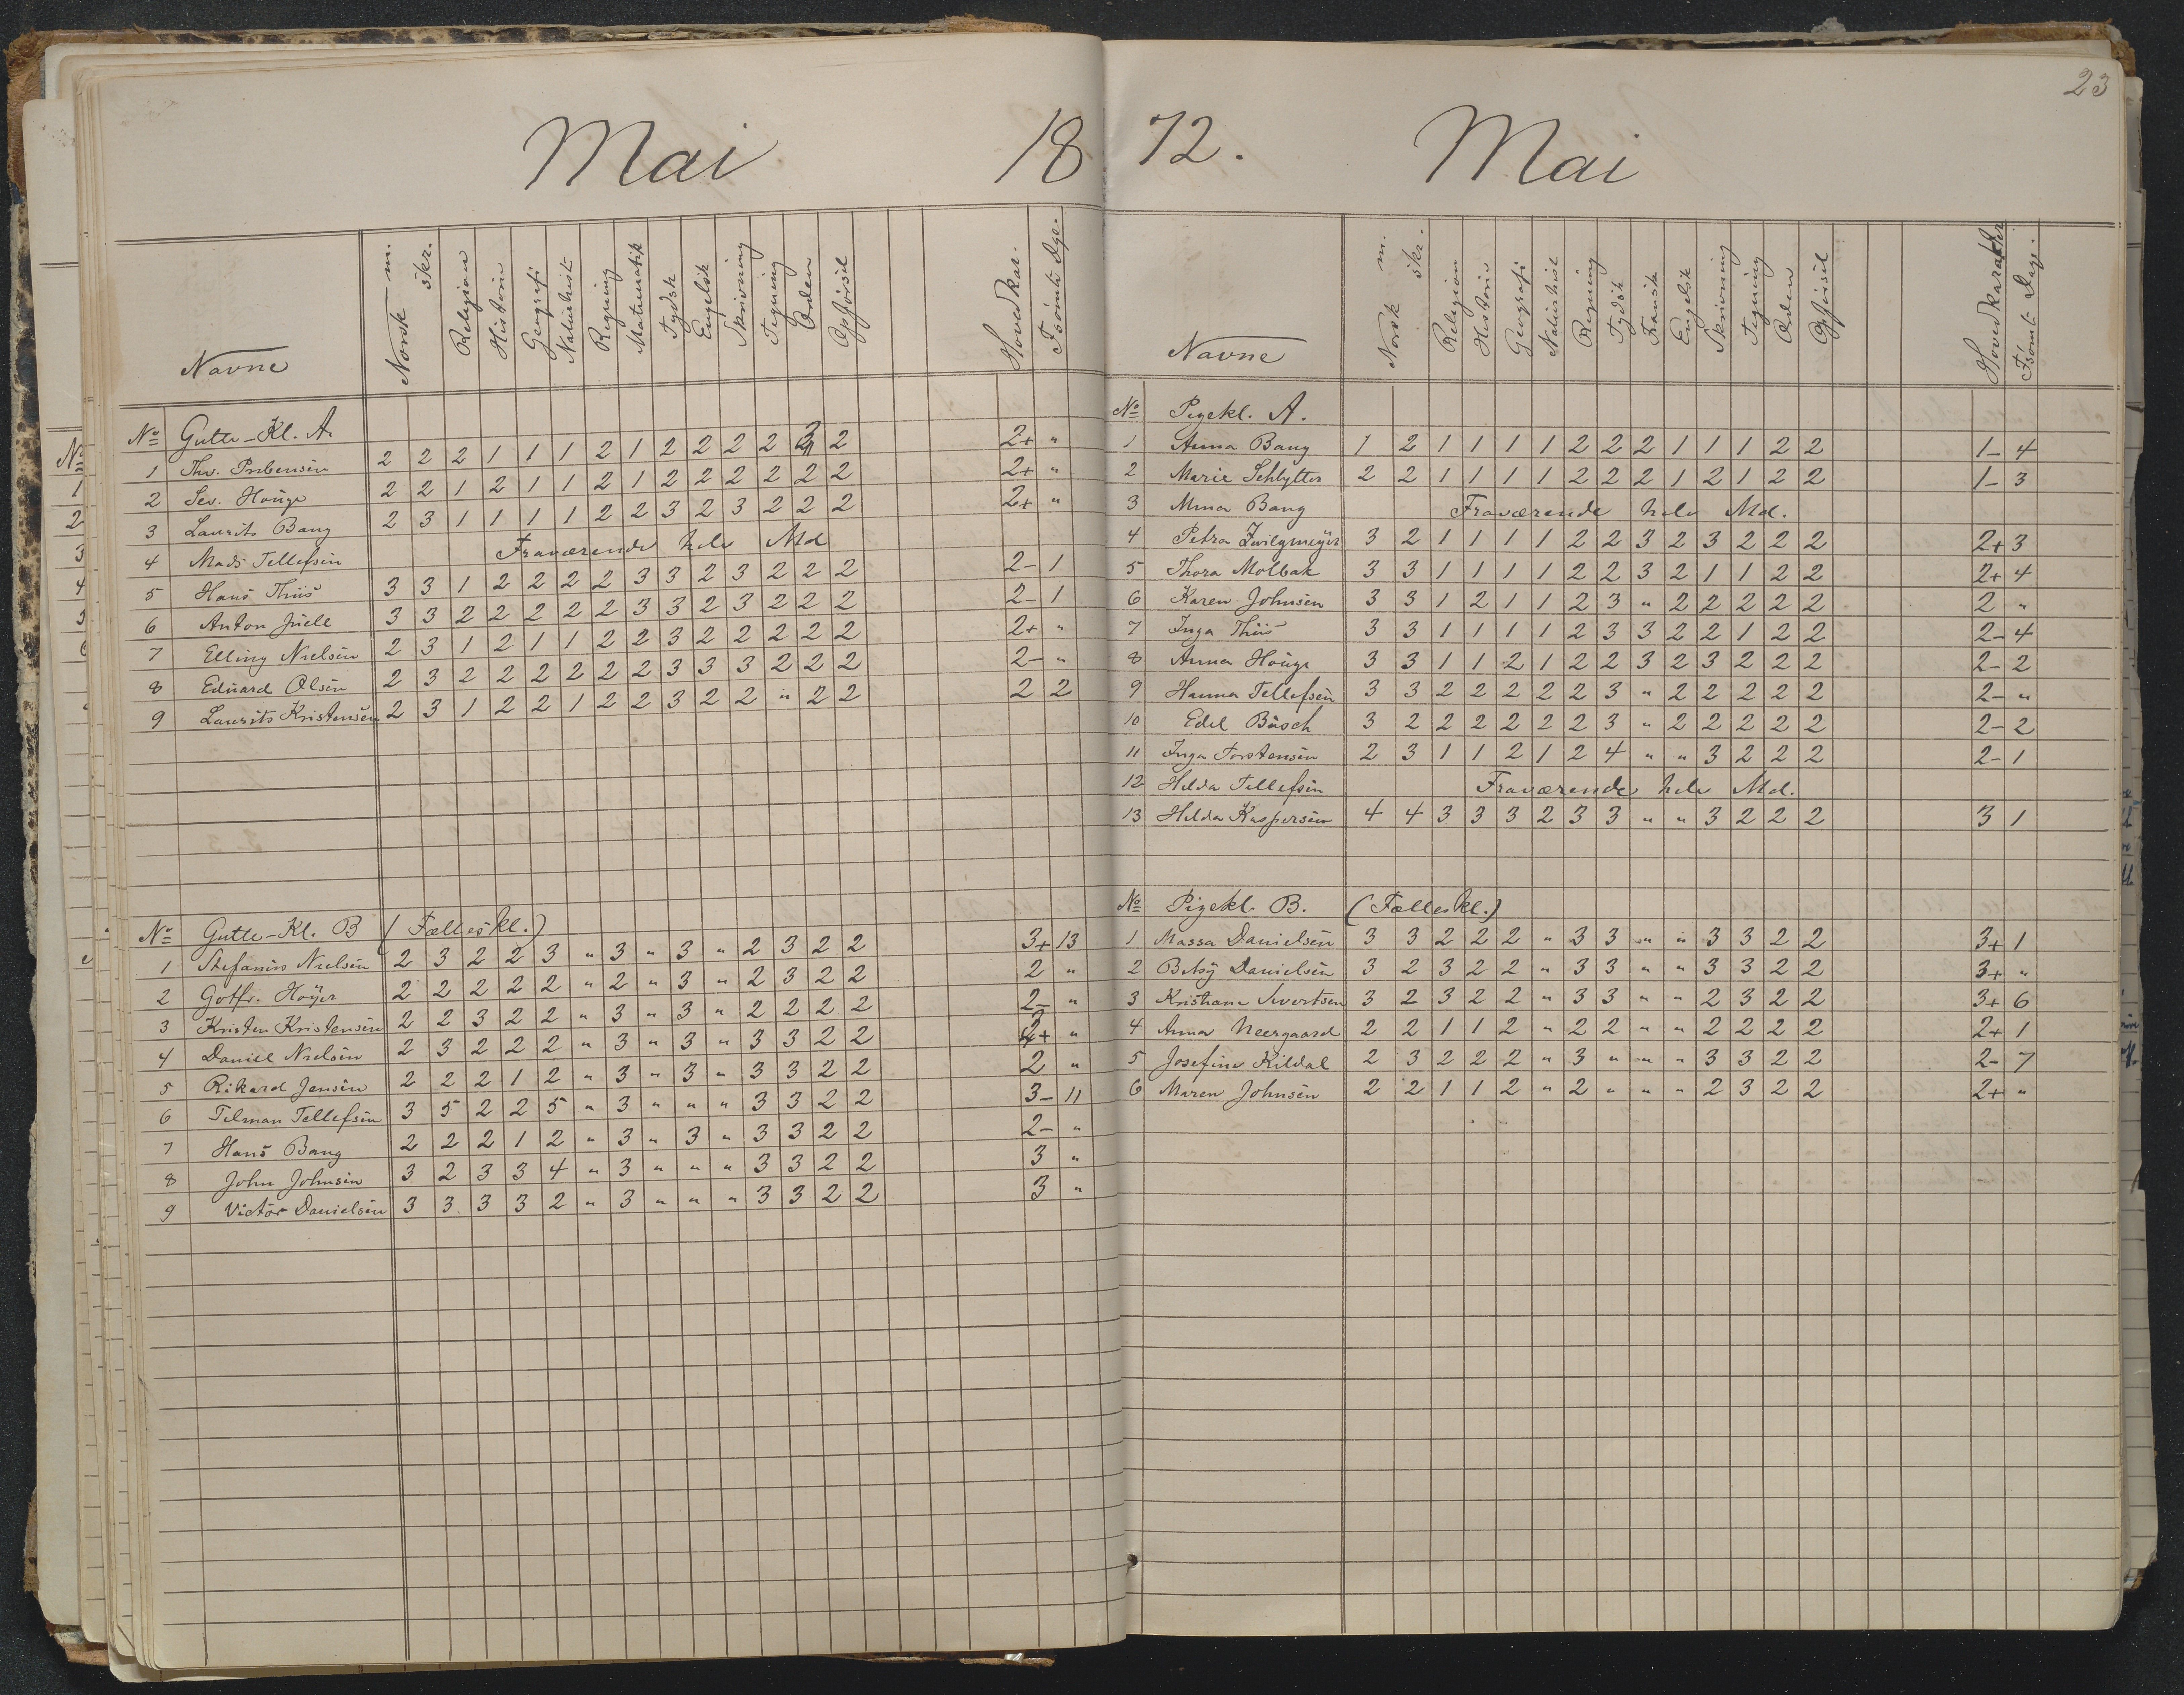 23
Mai 18
Navne Norsk m. skr. Religion Historie Geografi Naturhist. Regning Matematik Tydsk Engelsk Skrivning Tegning Orden Opførsel Hovedkar. Fsömte Dge.
No Gutte-Kl. A.
1 Ths. Pribensen 2 2 2 1 1 1 2 1 2 2 2 2 2 2+ "
2 Sev. Houge 2 2 1 2 1 1 2 1 2 2 2 2 2 2 2+ "
3 Laurits Bang 2 3 1 1 1 1 2 2 3 2 3 2 2 2 2+ "
4 Mads Tellefsen Fraværende hele Md
5 Hans Thiis 3 3 1 2 2 2 2 3 3 2 3 2 2 2 2- 1
6 Anton Juell 3 3 2 2 2 2 2 3 3 2 3 2 2 2 2- 1
7 Elling Nielsen 2 3 1 2 1 1 2 2 3 2 2 2 2 2 2+ "
8 Eduard Olsen 2 3 2 2 2 2 2 2 3 3 3 2 2 2 2- "
9 Laurits Kristensen 2 3 1 2 2 1 2 2 3 2 2 " 2 2 2 2
No Gutte-Kl. B (Fælleskl.)
1 Stefanus Nielsen 2 3 2 2 3 " 3 " 3 " 2 3 2 2 3+ 13
2 Gotfr. Høyer 2 2 2 2 2 " 2 " 3 " 2 3 2 2 2 "
3 Kristen Kristensen 2 2 3 2 2 " 3 " 3 " 2 2 2 2 2- "
4 Daniel Nielsen 2 3 2 2 2 " 3 " 3 " 3 3 2 2 + "
5 Rikard Jensen 2 2 2 1 2 " 3 " 3 " 3 3 2 2 2 "
6 Telman Tellefsen 3 5 2 2 5 " 3 " " " 3 3 2 2 3- 11
7 Hans Bang 2 2 2 1 2 " 3 " 3 " 3 3 2 2 2- "
8 John Johnsen 3 2 3 3 4 " 3 " " " 3 3 2 2 3 "
9 Victor Danielsen 3 3 3 3 2 " 3 " " " 3 3 2 2 3 "
72. Mai
Navne Norsk m. skr. Religion Historie Geografi Naturhist Regning Tydsk Fransk Engelsk Skrivning Tegning Orden Opførsel Hovedkarakter Fsömt Dage.
No Pigekl. A.
1 Anna Bang 1 2 1 1 1 1 2 2 2 1 1 1 2 2 1- 4
2 Marie Schlytter 2 2 1 1 1 1 2 2 2 1 2 1 2 2 1- 3
3 Mina Bang Fraværende hele Md.
4 Petra Zwilgmeyer 3 2 1 1 1 1 2 2 3 2 3 2 2 2 2+ 3
5 Thora Molbak 3 3 1 1 1 1 2 2 3 2 1 1 2 2 2+ 4
6 Karen Johnsen 3 3 1 2 1 1 2 3 " 2 2 2 2 2 2 "
7 Inga Thiis 3 3 1 1 1 1 2 3 3 2 2 1 2 2 2- 4
8 Anna Houge 3 3 1 1 2 1 2 2 3 2 3 2 2 2 2- 2
9 Hanna Tellefsen 3 3 2 2 2 2 2 3 " 2 2 2 2 2 2- "
10 Edel Büsch 3 2 2 2 2 2 2 3 " 2 2 2 2 2 2- 2
11 Inga Torstensen 2 3 1 1 2 1 2 4 " " 3 2 2 2 2- 1
12 Hilda Tellefsen Fraværende hele Md.
13 Hilda Kaspersen 4 4 3 3 3 2 3 3 " " 3 2 2 2 3 1
No Pigekl. B. (Fælleskl.)
1 Massa Danielsen 3 3 2 2 2 " 3 3 " " 3 3 2 2 3+ 1
2 Betsy Danielsen 3 2 3 2 2 " 3 3 " " 3 3 2 2 3+ "
3 Kristiane Sivertsen 3 2 3 2 2 " 3 3 " " 2 3 2 2 3+ 6
4 Anna Neergaard 2 2 1 1 2 " 2 2 " " 2 2 2 2 2+ 1
5 Josefine Kildal 2 3 2 2 2 " 3 " " " 3 3 2 2 2- 7
6 Maren Johnsen 2 2 1 1 2 " 2 " " " 2 3 2 2 2+ "